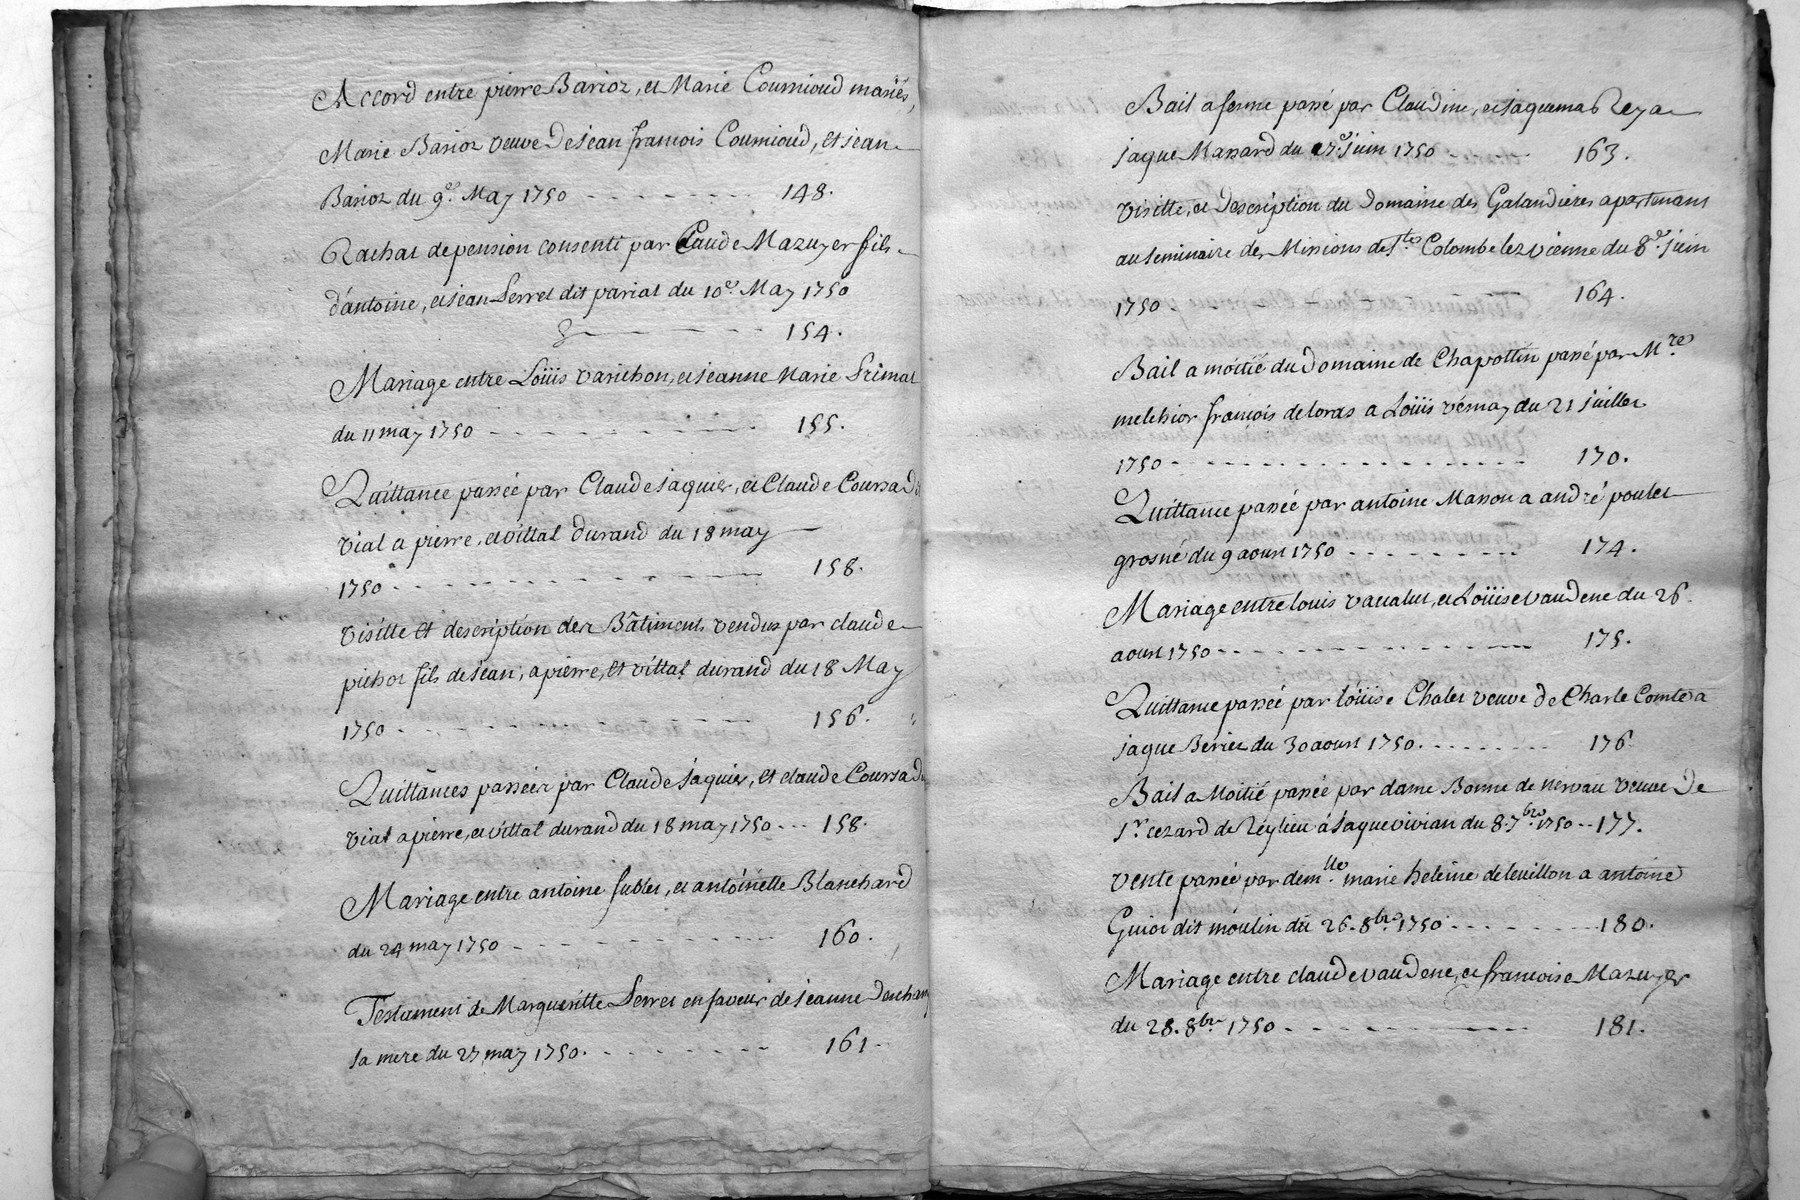 Accord entre pierre Barioz, et Marie Coumioud mariés,
Marie Barioz veuve de jean francois Coumioud, et jean
Barioz du 9e. May 1750 - - - - - - - 148.
Rachat de pension consenti par Claude Mazuyer fils
d'antoine, et jean Serret dit pariat du 10e. May 1750
- - - - - - - 154.
Mariage entre Loüis varichon, et jeanne Marie Primat
du 11 may 1750 - - - - - - - 155.
Quittance passée par Claude jaquier, et Claude Coursad
vial a pierre, et vittal durand du 18 may
1750 - - - - - - - 158.
visitte et description des Bâtiments vendus par claude
pichot fils de jean, a pierre, et vittal durand du 18 May
1750 - - - - - - - 156.
Quittances passées par Claude jaquier, et claude Coursad
vial a pierre, et vittal durand du 18 may 1750 - - - 158.
Mariage entre antoine fublet, et antoinette Blanchard
du 24 may 1750 - - - - - - - 160.
Testament de Margueritte Serret en faveur de jeanne deschamp
sa mere du 27 may 1750. - - - - - - - 161.
Bail a ferme passé par Claudine, et jaquema Rey a
jaque Massard du 7e. juin 1750 - - - 163.
visitte, et description du domaine des Galandieres apartenant
au seminaire des Missions de Ste. Colombe lez vienne du 8e. juin
1750 - - - - - - - 164.
Bail a moitié du Domaine de Chapottin passé par Mre.
melchior francois de loras a Loüis vernay du 21 juillet
1750 - - - - - - - 170.
Quittance passée par antoine Masson a andré poulet
grosné du 9 aoust 1750 - - - - - - - 174.
Mariage entre louis vacalut, et Loüise vaudene du 26
aoust 1750 - - - - - - - 175.
Quittance passée par loüise Chalet veuve de Charle Comte a
jaque Beriez du 30 aoust 1750. - - - - - - - 176
Bail a Moitié passée par dame Bonne de nervau veuve de
Sr. cezard de Reylieu á jaque vivian du 8. 7bre. 1750 - - 177.
vente passée par demlle. marie heleine de leuillon a antoine
Guiot dit moulin du 26. 8bre. 1750 - - - - - - - 180.
Mariage entre claude vaudene, et francoise Mazuyer
du 28. 8bre 1750 - - - - - - - 181.